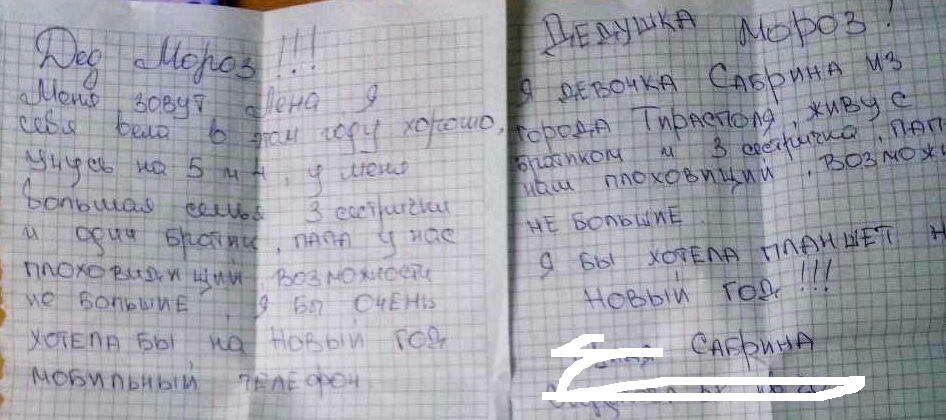 Дед Мороз!!!
Меня зовут Лена Я
себя вела в этом году хорошо,
учусь на 5 и 4, у меня
большая семья 3 сестрички
и один братик, папа у нас
плоховидящий, возможности
не большие, я бы очень
хотела бы на Новый год
мобильный телефон
Дедушка Мороз!
Я девочка Сабрина из
города Тирасполя, живу с
братиком и 3 сестрички, пап
наш плоховищий, возможн
не большие.
Я бы хотела планшет н
Новый год!!!
Сабрина